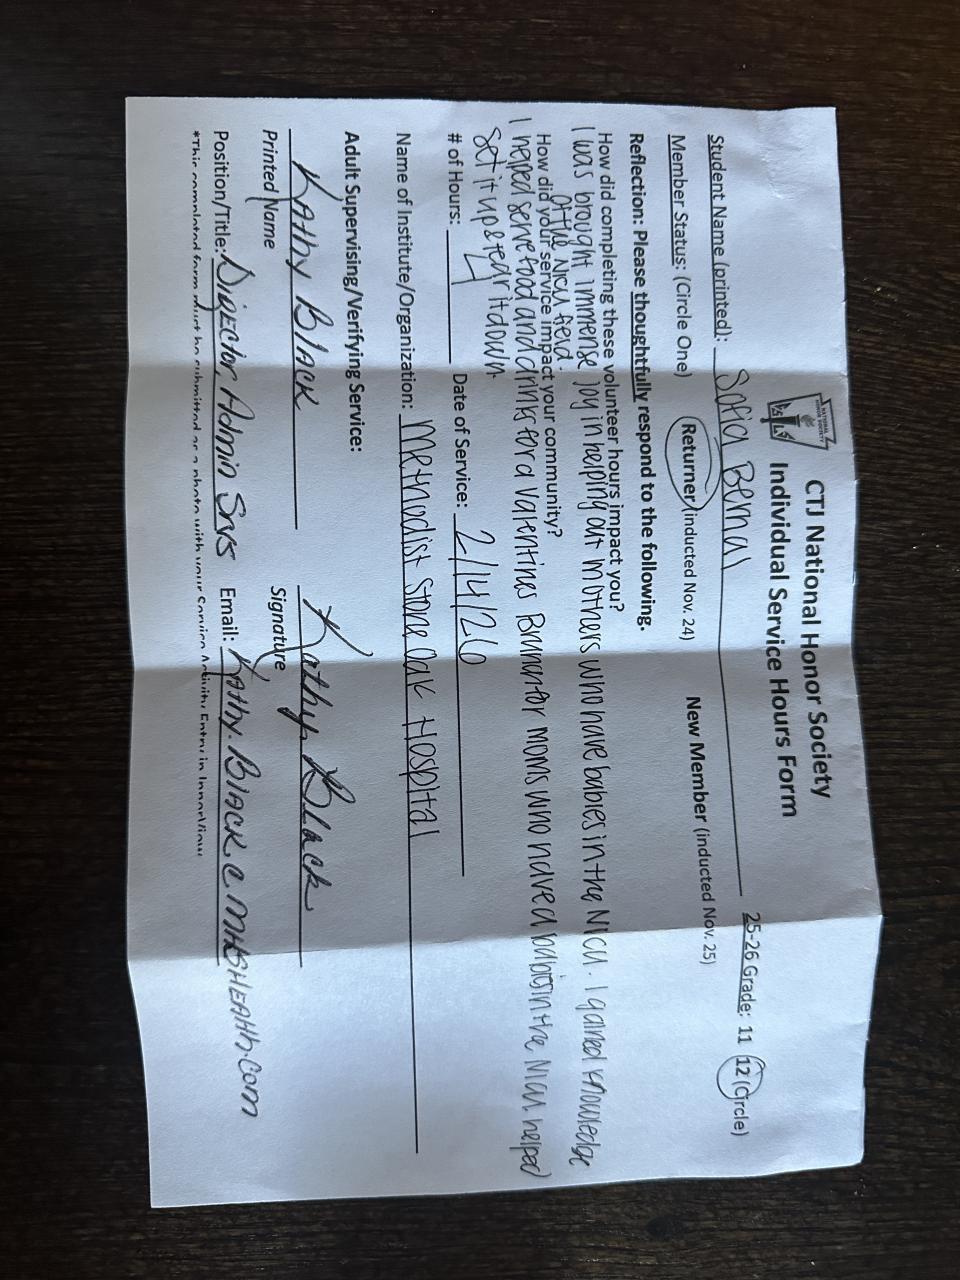 NATIONAL HONOR SOCIETY
CTJ National Honor Society
Individual Service Hours Form
Student Name (printed): Sofia Bernal 25-26 Grade: 11 12 (Circle)
Member Status: (Circle One) Returner (inducted Nov. 24) New Member (inducted Nov. 25)
Reflection: Please thoughtfully respond to the following.
How did completing these volunteer hours impact you?
I was brought immense joy in helping out mothers who have babies in the NICU. I gained knowledge
of the NICU field.
How did your service impact your community?
I helped serve food and drinks for a Valentines Brunch for moms who have babies in the NICU helped
set it up & tear it down.
# of Hours: 4 Date of Service: 2/14/26
Name of Institute/Organization: Methodist Stone Oak Hospital
Adult Supervising/Verifying Service:
Kathy Black Kathy Black
Printed Name Signature
Position/Title: Director, Admin Srvs Email: Kathy.Black@MHSHealth.com
*This completed form must be submitted as a photo with your Service Activity Entry in InnerView